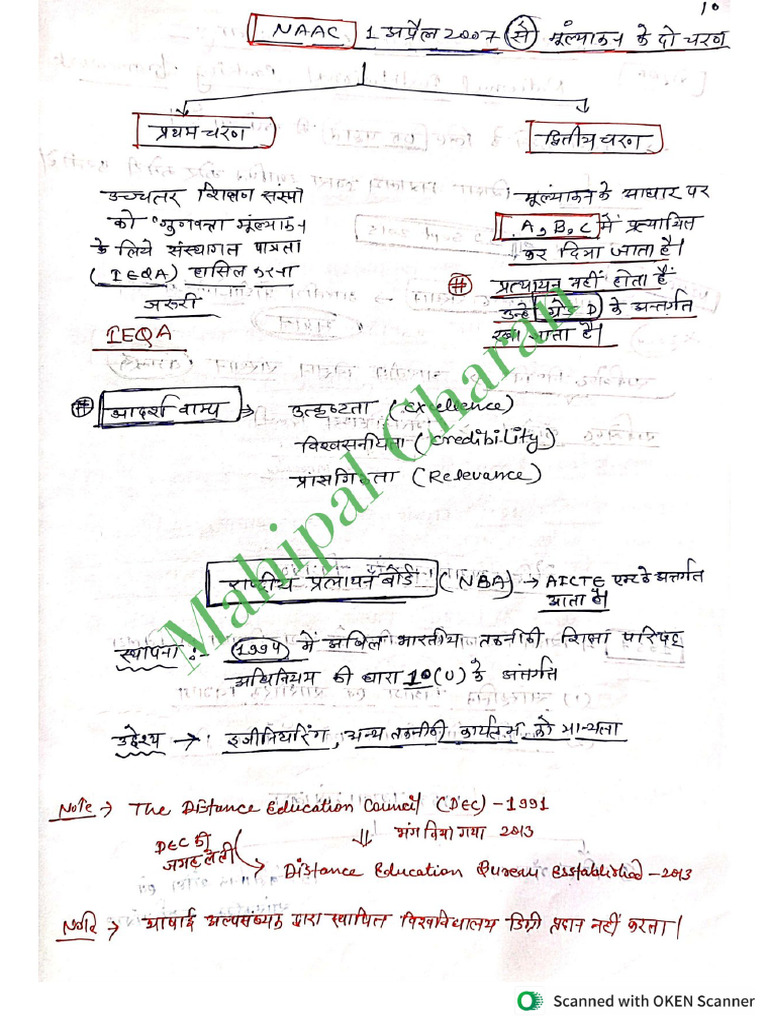 10
NAAC 1 अप्रैल 2007 से मूल्यांकन के दो चरण
प्रथम चरण
द्वितीय चरण
उच्चतर शिक्षण संस्था
को गुणवत्ता मूल्यांकन
के लिये संस्थागत पात्रता
(IEQA) हासिल करना
जरूरी
IEQA
मूल्यांकन के आधार पर
A, B, C में प्रत्यायित
कर दिया जाता है।
# प्रत्यायन नहीं होता है
उन्हें ग्रेड D के अन्तर्गत
रखा जाता है।
# आदर्श वाक्य ⇒ उत्कृष्टता (Excellence)
विश्वसनीयता (Credibility)
प्रांसगिकता (Relevance)
Mahipal Charan
राष्ट्रीय प्रत्यायन बोर्ड (NBA) → AICTE एक्ट के अन्तर्गत
आता है
स्थापना :- 1994 में अखिल भारतीय तकनीकी शिक्षा परिषद
अधिनियम की धारा 10(U) के अंतर्गत
उद्देश्य → इंजीनियरिंग, अन्य तकनीकी कार्यक्रमों को मान्यता
Note → The Distance Education Council (DEC) - 1991
भंग किया गया 2013
DEC की
जगह ली
→ Distance Education Bureau Established - 2013
Note → भाषाई अल्पसंख्यक द्वारा स्थापित विश्वविद्यालय डिग्री प्रदान नहीं करता।
Scanned with OKEN Scanner